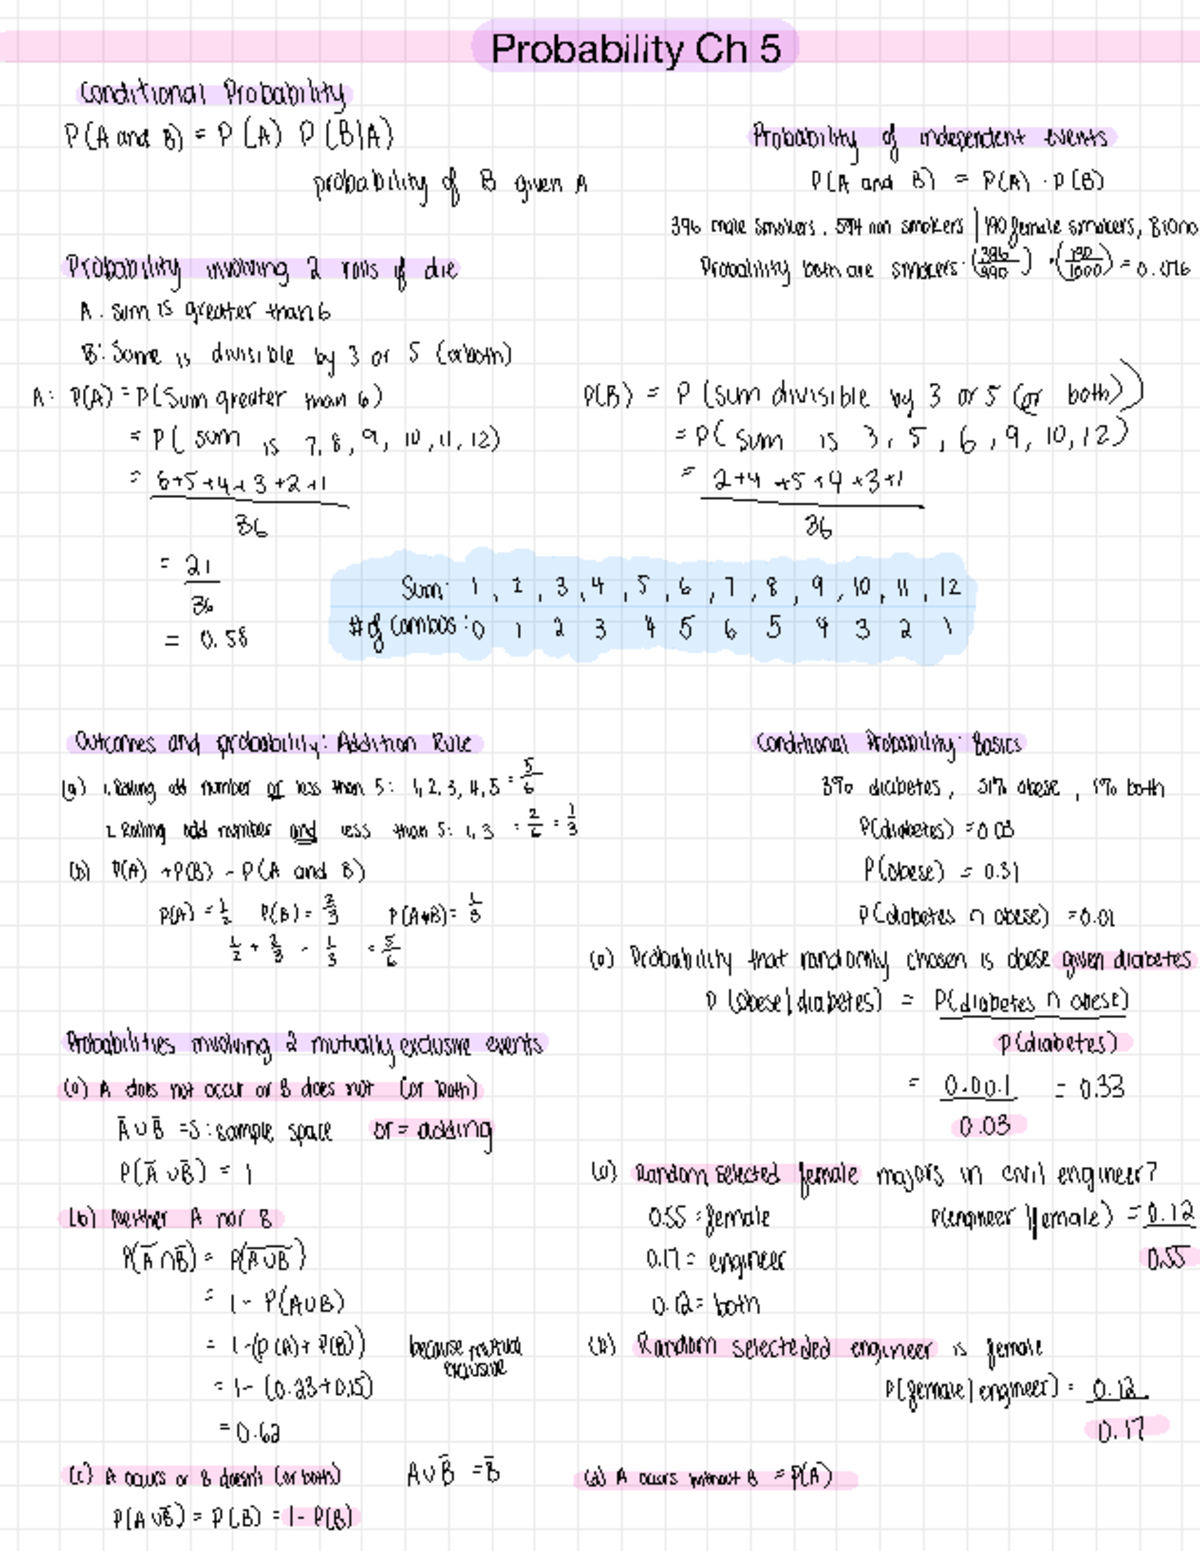 Probability Ch 5
Conditional Probability
P(A and B) = P(A) P(B|A)
probability of B given A
Probability of independent events
P(A and B) = P(A) · P(B)
396 male smokers, 594 non smokers | 190 female smokers, 810 no
Probability both are smokers: (396/990) · (190/1000) = 0.076
Probability involving 2 rolls of die
A: sum is greater than 6
B: Some is divisible by 3 or 5 (or both)
A: P(A) = P(Sum greater than 6)
= P(sum is 7, 8, 9, 10, 11, 12)
= 6+5+4+3+2+1
36
= 21
36
= 0.58
P(B) = P (sum divisible by 3 or 5 (or both))
= P(sum is 3, 5, 6, 9, 10, 12)
= 2+4+5+4+3+1
36
Sum: 1, 2, 3, 4, 5, 6, 7, 8, 9, 10, 11, 12
# of combos: 0 1 2 3 4 5 6 5 4 3 2 1
Outcomes and probability: Addition Rule
(a) 1. Rolling odd number or less than 5: 1, 2, 3, 4, 5 = 5/6
2. Rolling odd number and less than 5: 1, 3 = 2/6 = 1/3
(b) P(A) + P(B) - P(A and B)
P(A) = 1/2 P(B) = 2/3 P(A+B) = 1/3
1/2 + 2/3 - 1/3 = 5/6
Probabilities involving 2 mutually exclusive events
(a) A does not occur or B does not (or both)
A̅ ∪ B̅ = S: sample space or = adding
P(A̅ ∪ B̅) = 1
(b) Neither A nor B
P(A̅ ∩ B̅) = P(A̅∪̅B̅)
= 1 - P(A∪B)
= 1-(P(A) + P(B)) because mutual exclusive
= 1- (0.23+0.15)
= 0.62
(c) A occurs or B doesn't (or both) A∪B̅ = B̅
P(A∪B̅) = P(B) = 1- P(B)
Conditional Probability: Basics
3% diabetes, 31% obese, 1% both
P(diabetes) = 0.03
P(obese) = 0.31
P(diabetes ∩ obese) = 0.01
(a) Probability that randomly chosen is obese given diabetes
P (obese|diabetes) = P(diabetes ∩ obese)
P(diabetes)
= 0.00.1 = 0.33
0.03
(a) Random selected female majors in civil engineer?
0.55 = female P(engineer | female) = 0.12
0.17 = engineer 0.55
0.12 = both
(b) Random selecteded engineer is female
P(female | engineer) = 0.12
0.17
(d) A occurs without B = P(A)